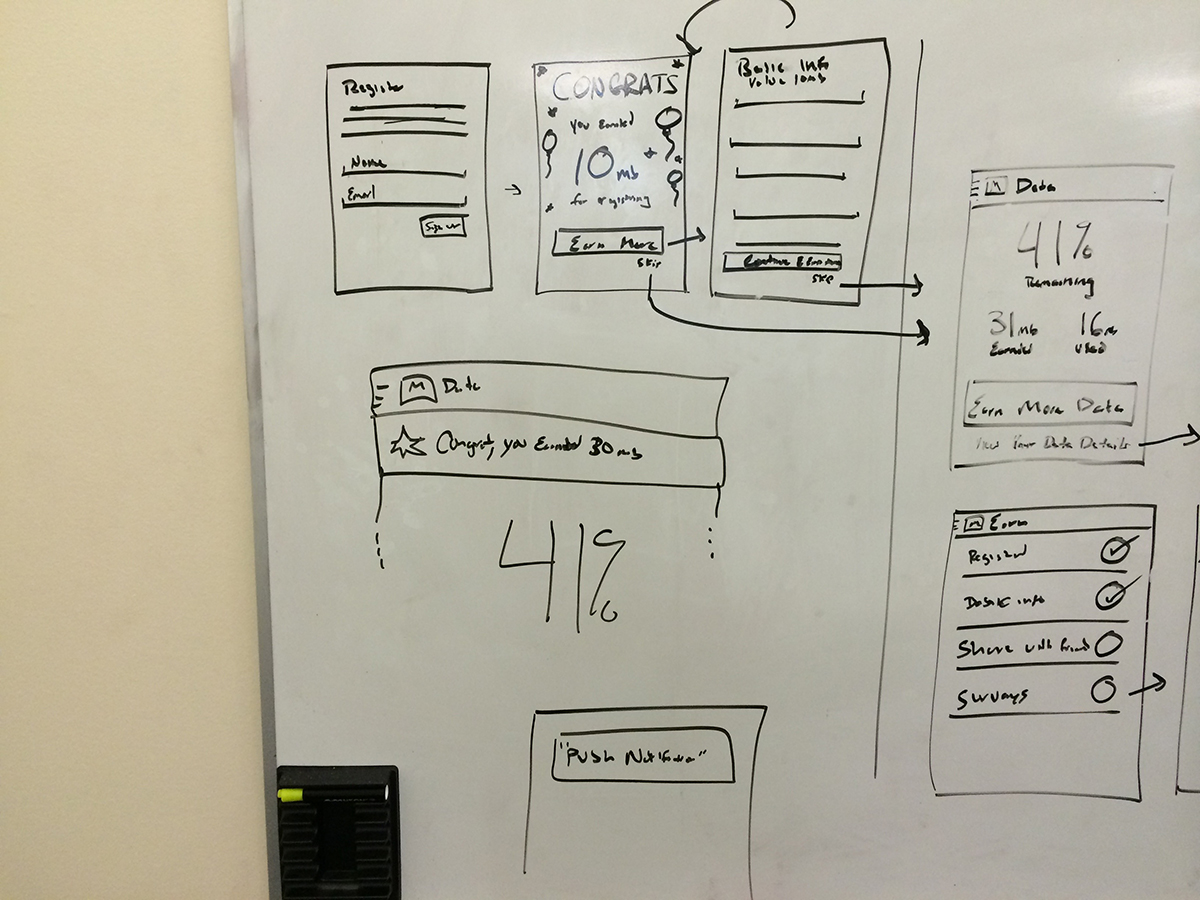 Register
Name
Email
Sign up
CONGRATS
you Earned
10 mb
for registering
Earn More
Skip
Basic Info
Value 10mb
Continue
Skip
M Data
41%
Remaining
31mb 16mb
Earned Used
Earn More Data
View Your Data Details
M Data
Congrats, you Earned 30mb
41%
M Earn
Register
Basic info
Share with friends
Surveys
"Push Notification"